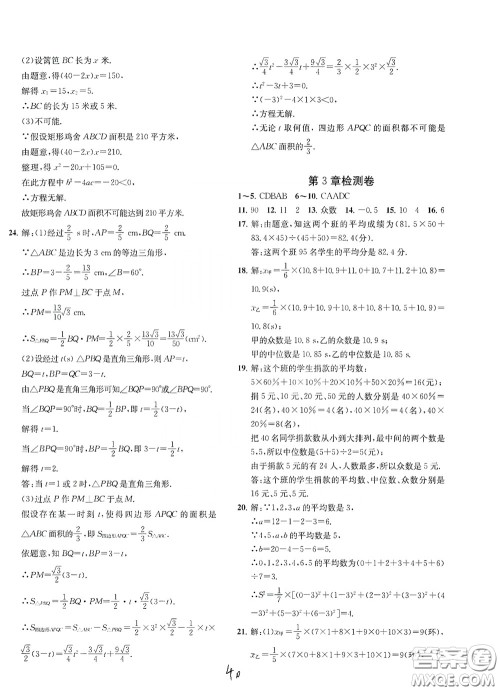 (2)设篱笆 BC 长为 x 米.
由题意,得(40-2x)x=150,
解得 x₁=15,x₂=5.
∴BC 的长为 15 米或 5 米.
(3)不可能.
∵假设矩形鸡舍 ABCD 面积是 210 平方米,
由题意,得(40-2x)x=210.
整理,得 x²-20x+105=0.
在此方程中 b²-4ac=-20<0,
∴方程无解.
故矩形鸡舍 ABCD 面积不可能达到 210 平方米.
24. 解:(1)经过 2/5 s时,AP=2/5 cm,BQ=2/5 cm,
∵△ABC 是边长为 3 cm的等边三角形,
∴BP=3-2/5=13/5 cm,∠B=60°.
过点 P 作 PM⊥BC 于 M,
∴PM=13√3/10 cm.
∴S△PBQ=1/2BQ·PM=1/2×2/5×13√3/10=13√3/50(cm²).
(2)设经过 t(s) △PBQ 是直角三角形,则 AP=t.
BQ=t,BP=QC=3-t.
由△PBQ是直角三角形可知∠BQP=90°或∠BPQ=90°.
当∠BQP=90°时,BQ=1/2BP,即 t=1/2(3-t),
解得 t=1.
当∠BPQ=90°时,BP=1/2BQ,即 3-t=1/2t,
解得 t=2.
答:当 t=1 或 t=2 时,△PBQ 是直角三角形.
(3)过点 P 作 PM⊥BC 于点 M,
假设存在某一时刻 t,使得四边形 APQC 的面积是
△ABC 面积的 2/3,即 S四边形APQC=2/3S△ABC.
依题意,知 BQ=t,BP=3-t,
∴PM=√3/2(3-t).
∴S△PBQ=1/2BQ·PM=1/2·t·√3/2(3-t).
∴S四边形APQC=S△ABC-S△PBQ=1/2×3²×√3/2-1/2t×
√3/2(3-t)=√3/4t²-3√3/4t+9√3/4.
∴√3/4t²-3√3/4t+9√3/4=2/3×1/2×3²×√3/2.
∴t²-3t+3=0.
∵(-3)²-4×1×3<0,
∴方程无解.
∴无论 t 取何值,四边形 APQC 的面积都不可能是
△ABC 面积的 2/3.
第 3 章检测卷
1~5. CDBAB 6~10. CAADC
11. 90 12. 11 13. 众数 14. -0.5 15. 10 4 16. 6
17. 解:由题意,知这两个班的平均成绩为(81.5×50+
83.4×45)÷(45+50)=82.4(分).
答:这两个班 95 名学生的平均分是 82.4 分.
18. 解:x甲=1/6×(10.8+10.9+11+10.7+11.2+10.8)
=10.9(s),
x乙=1/6×(10.9+10.9+10.8+10.8+10.5+10.9)
=10.8(s);
甲的众数是 10.8 s,乙的众数是 10.9 s;
甲的中位数是 10.85 s,乙的中位数是 10.85 s.
19. 解:答:这个班的学生捐款的平均数:
5×60%+10×10%+20×10%+50×20%=16(元);
捐 5元,10元,20元,50元的人数分别是 40×60%=
24(名),40×10%=4(名),40×10%=4(名),40×
20%=8(名).
把 40 名同学捐款数从小到大排列,最中间的两个数是
5,5,所以中位数是(5+5)÷2=5(元);
由于捐款 5 元的有 24 人,人数最多,所以众数是 5 元.
答:这个班的学生捐款的平均数、中位数、众数分别是
16 元,5 元,5 元.
20. 解:∵1,3,2,a 的平均数是 3,
∴a=12-1-2-3=6.
又∵4,5,a,b 的平均数是 5,
∴b=20-4-5-6=5,
∴0,1,2,3,4,6,5 的平均数为(0+1+2+3+4+5+6)
÷7=3.
∴S²=1/7×[(0-3)²+(1-3)²+(2-3)²+(3-3)²+(4
-3)²+(6-3)²+(5-3)²]=4.
21. 解:(1)x甲=1/5×(7×1+8×1+9×1+10×2)=9(环),
x乙=1/5×(7×0+8×1+9×3+10×1)=9(环),
40